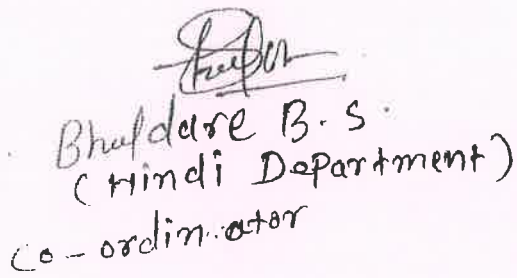 Bhuldare B.S.
(Hindi Department)
Co-ordinator